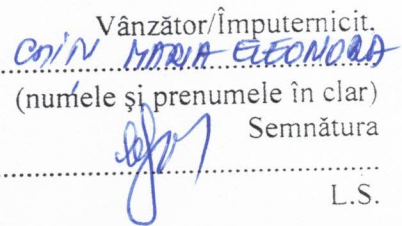 Vânzător/Împuternicit.
MARIA ELEONORA
(numele şi prenumele în clar)
Semnătura
L.S.